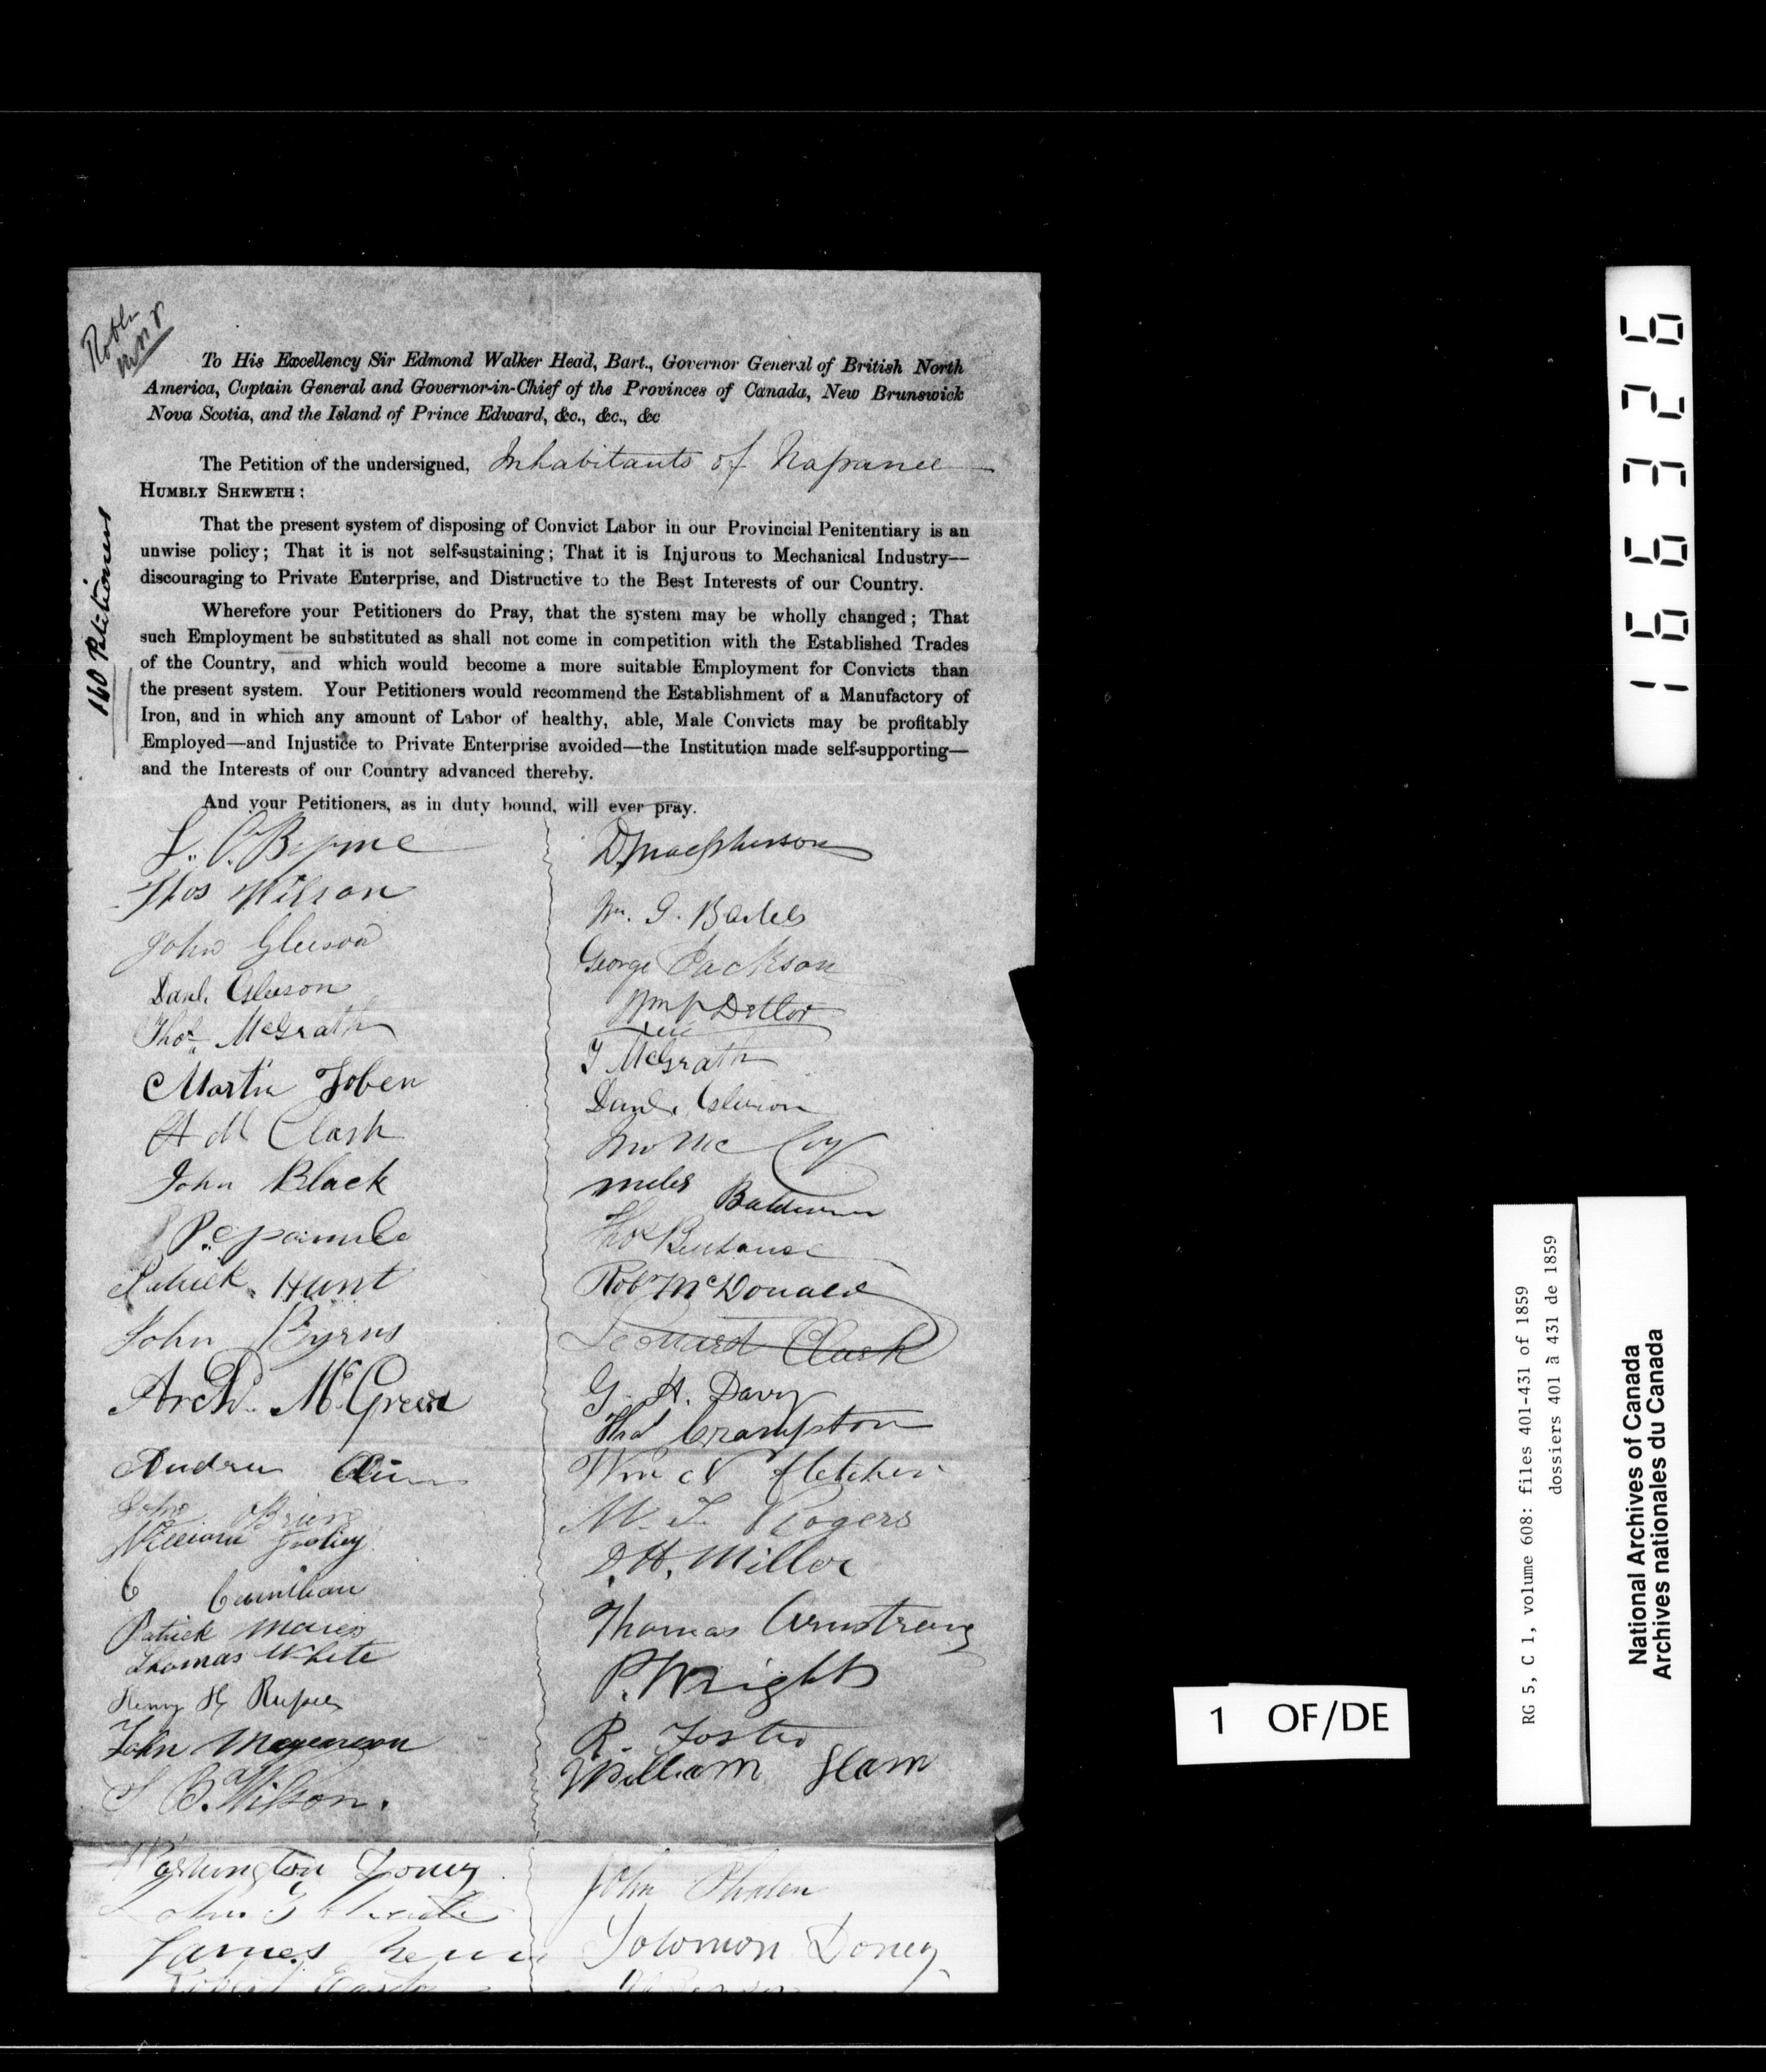 To His Excellency Sir Edmond Walker Head, Bart., Governor General of British North
America, Captain General and Governor-in-Chief of the Provinces of Canada, New Brunswick
Nova Scotia, and the Island of Prince Edward, &c., &c., &c
The Petition of the undersigned, Inhabitants of Napanee
HUMBLY SHEWETH:
That the present system of disposing of Convict Labor in our Provincial Penitentiary is an
unwise policy; That it is not self-sustaining; That it is Injurous to Mechanical Industry—
discouraging to Private Enterprise, and Distructive to the Best Interests of our Country.
Wherefore your Petitioners do Pray, that the system may be wholly changed; That
such Employment be substituted as shall not come in competition with the Established Trades
of the Country, and which would become a more suitable Employment for Convicts than
the present system. Your Petitioners would recommend the Establishment of a Manufactory of
Iron, and in which any amount of Labor of healthy, able, Male Convicts may be profitably
Employed—and Injustice to Private Enterprise avoided—the Institution made self-supporting—
and the Interests of our Country advanced thereby.
And your Petitioners, as in duty bound, will ever pray.
160 Petitioners
Thos Wilson
John Gleeson
Danl. Gleeson
Thos McGrath
Martin Toben
H M Clark
John Black
Patrick Hunt
John Byrns
Archd. McGreer
Andrew
John
William
C
Patrick
Thomas White
Henry H
John
S B. Wilson.
Washington Doney
John
James
Robert
D, Macpherson
Wm. G.
George Jackson
Wm Detlor
T McGrath
Danl. Gleeson
Jno McCoy
Miles Baldwin
Thos
Robt McDonald
Leonard Clark
G. H. Davy
Thos Crampton
Wm N Fletcher
W. T. Rogers
D. H. Miller
Thomas Armstrong
P. Wright
R. Foster
William
John Phalen
Solomon Doney
166326
1 OF/DE
RG 5, C 1, volume 608: files 401-431 of 1859
dossiers 401 à 431 de 1859
National Archives of Canada
Archives nationales du Canada